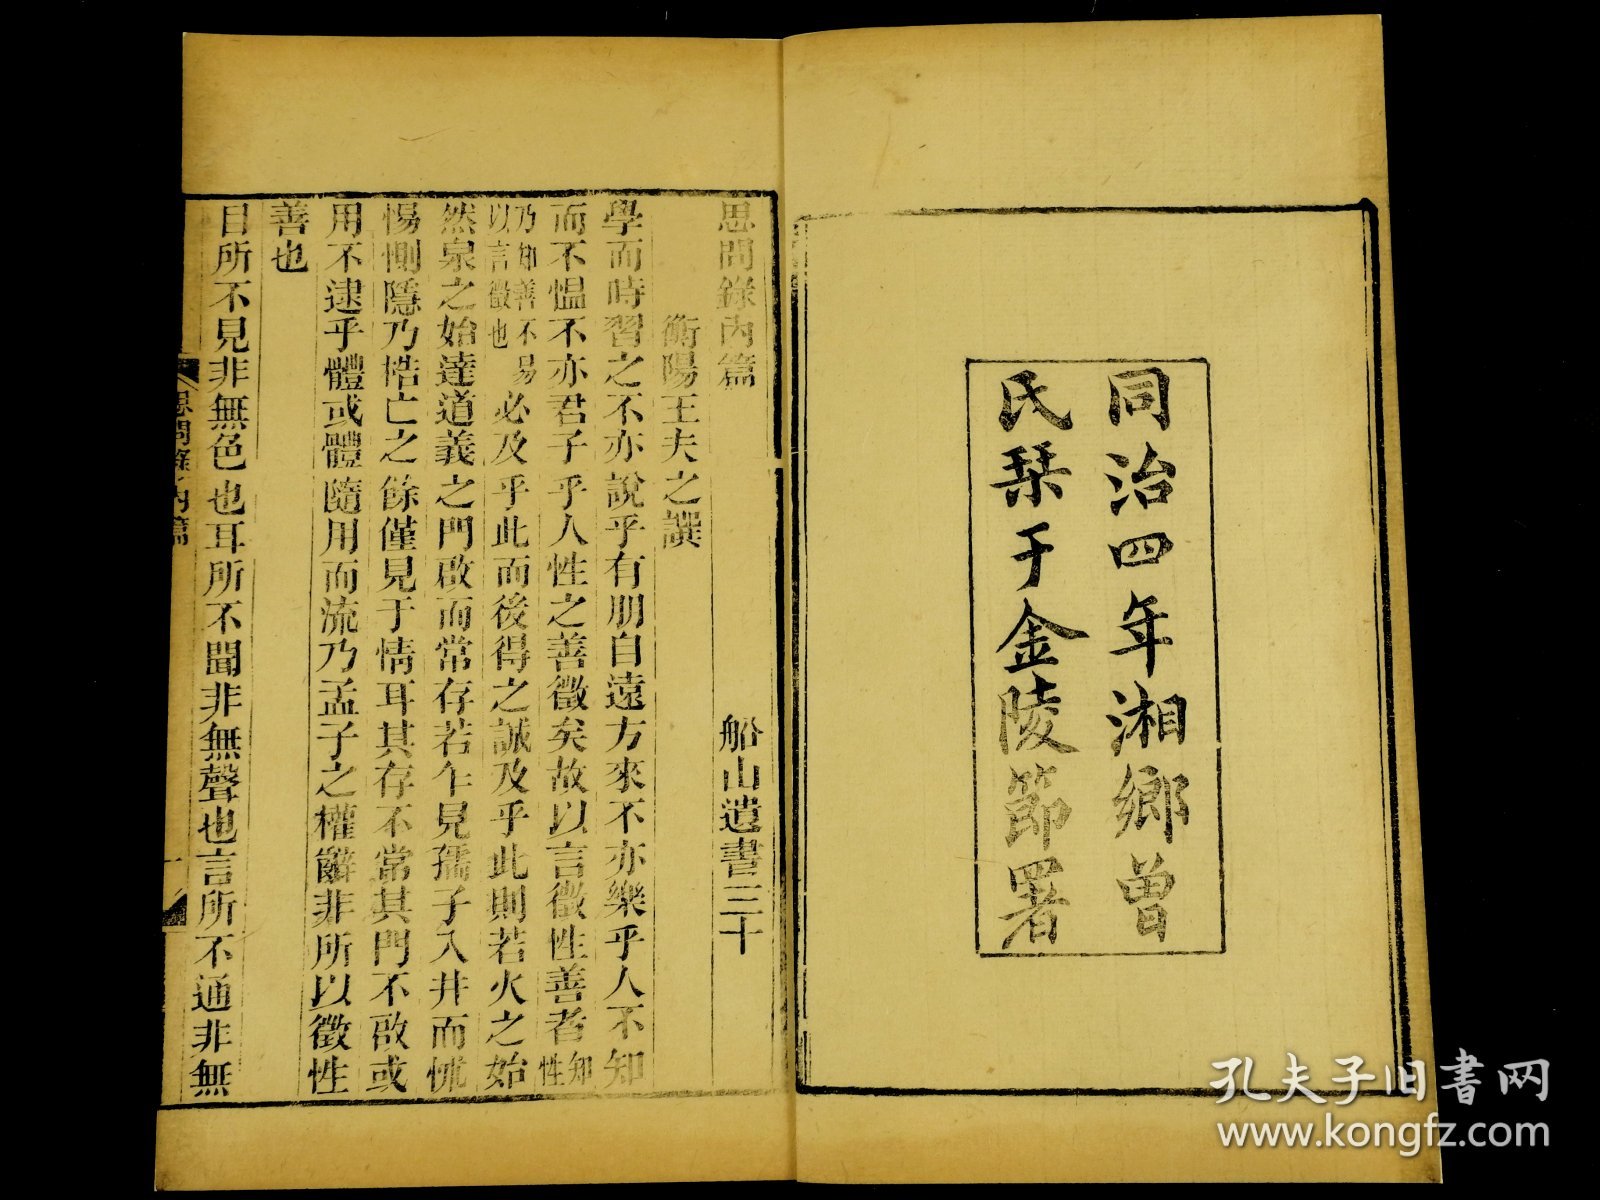 同治四年湘鄉曾
氏栞于金陵節署
思問錄內篇 船山遺書三十
衡陽王夫之譔
學而時習之不亦說乎有朋自遠方來不亦樂乎人不知
而不慍不亦君子乎人性之善徵矣故以言徵性善者知性
乃知善不易以言徵也必及乎此而後得之誠及乎此則若火之始
然泉之始達道義之門啟而常存若乍見孺子入井而怵
惕惻隱乃梏亡之餘僅見于情耳其存不常其門不啟或
用不逮乎體或體隨用而流乃孟子之權辭非所以徵性
善也
目所不見非無色也耳所不聞非無聲也言所不通非無
思問錄內篇
一
孔夫子旧書网
www.kongfz.com